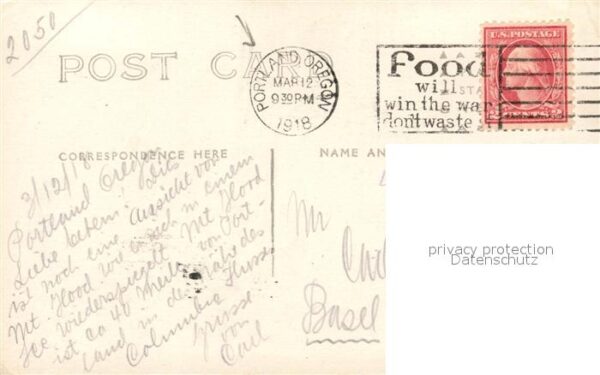 2050
POST CARD
PORTLAND, OREGON
MAR 12
9 30 PM
1918
Food
will
win the war
don't waste it
U.S. POSTAGE
CORRESPONDENCE HERE
NAME AN
3/12/18
Portland Oregon
Liebe
Dies
ist noch eine Aussicht von
Mt Hood wie er sich in einem
See wiederspiegelt. Mt Hood
ist ca 40 Meilen von Port-
land in der Nähe des
Columbia Flusses
Grüsse
von
Carl
Mr
Carl
Basel
privacy protection
Datenschutz